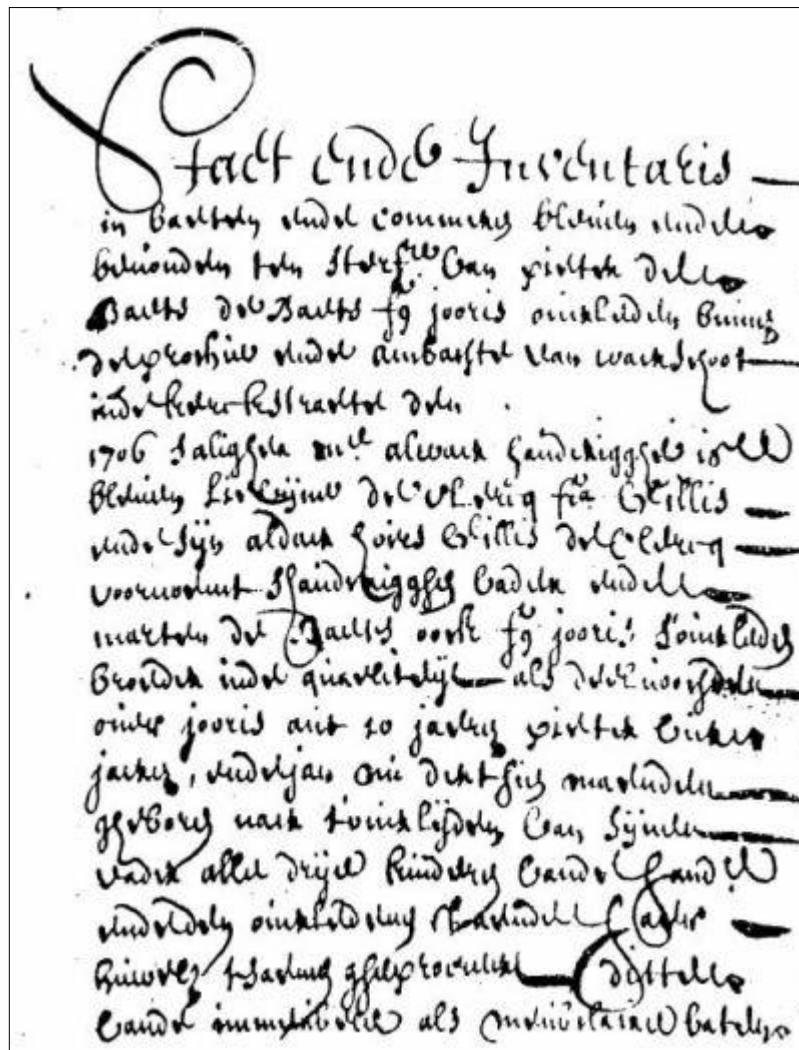 Staet ende Inventaris
in baeten ende commeren bleven ende
bevonden ten sterf.re van pieter de
Baets de Baets fs jooris overleden binnen
de prochie ende ambachte van waerschoot
inde kerckstraete den
1706 saligher me.. alwaer haudenigghe is
bleven Lievijne de Clercq fa Gillis
ende sijn aldaer hoirs Gillis de Clercq
voornoemt shaudenigghe vader ende
marten de Baets oock fs jooris soverleden
broeder inde qualiteijt als
jooris out 10 jaeren pieter
jaeren, ende jan maenden
ghebooren naer toverlijden van sijnen
vader alle drije kinderen vande haud.e
ende den overledenen t'haerder
huwel. tsaemen gheprocureert dit
vande immeubele als meubelaire baten